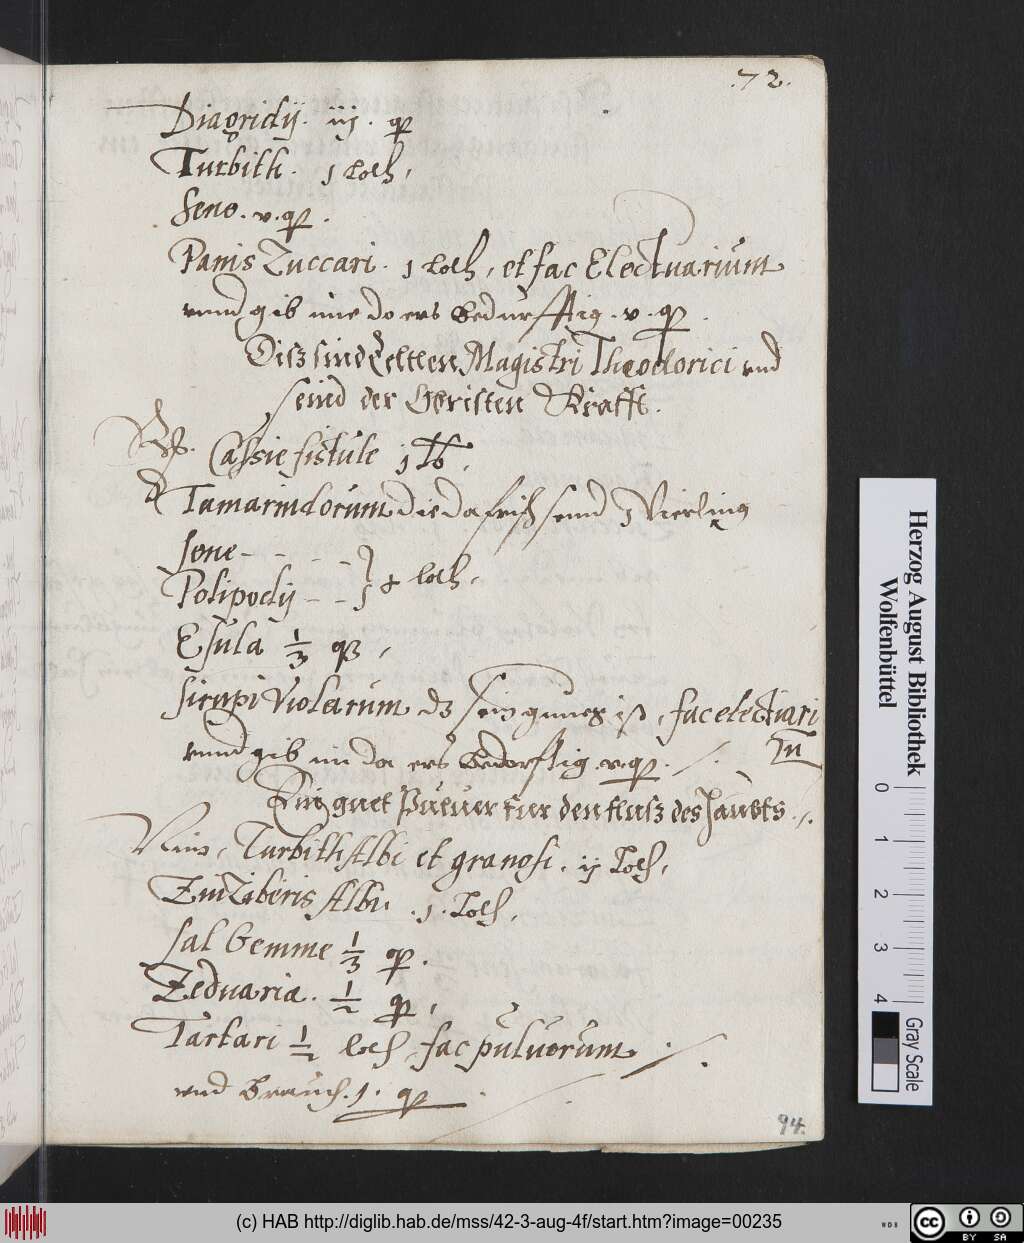 72.
Diagridÿ. iij. qp
Turbith. j Loth,
Seno. v. qp.
Panis Zuccari. j Loth, et fac Electuarium
vnnd gib ime do ers bedurfftig. v. qp.
Magistri Theodorici vnd
seind der Ersten Krafft.
Rp. Cassie fistule j lb,
Tamarindorum die da frisch seind 3 Vierling
Sene - - - -
Polipodÿ - - - loth,
Esula 1/3 qp,
Sirupi Violarum dz sein gnueg ist, fac electuari
um
vnnd gib im da ers bedorfftig. v. qp.
Ein guet Puluer fur den fluss des Haubts.
Nim, Turbith Albi et granosi. ij Loth,
Zinziberis Albi .j. Loth,
Sal Gemme 1/3 qp.
Zeduaria. 1/2 qp,
Tartari 1/2 loth, fac puluerum.
vnd brauch. 1. qp
94.
Herzog August Bibliothek
Wolfenbüttel
0 1 2 3 4
Gray Scale
(c) HAB http://diglib.hab.de/mss/42-3-aug-4f/start.htm?image=00235
WDB
cc BY SA